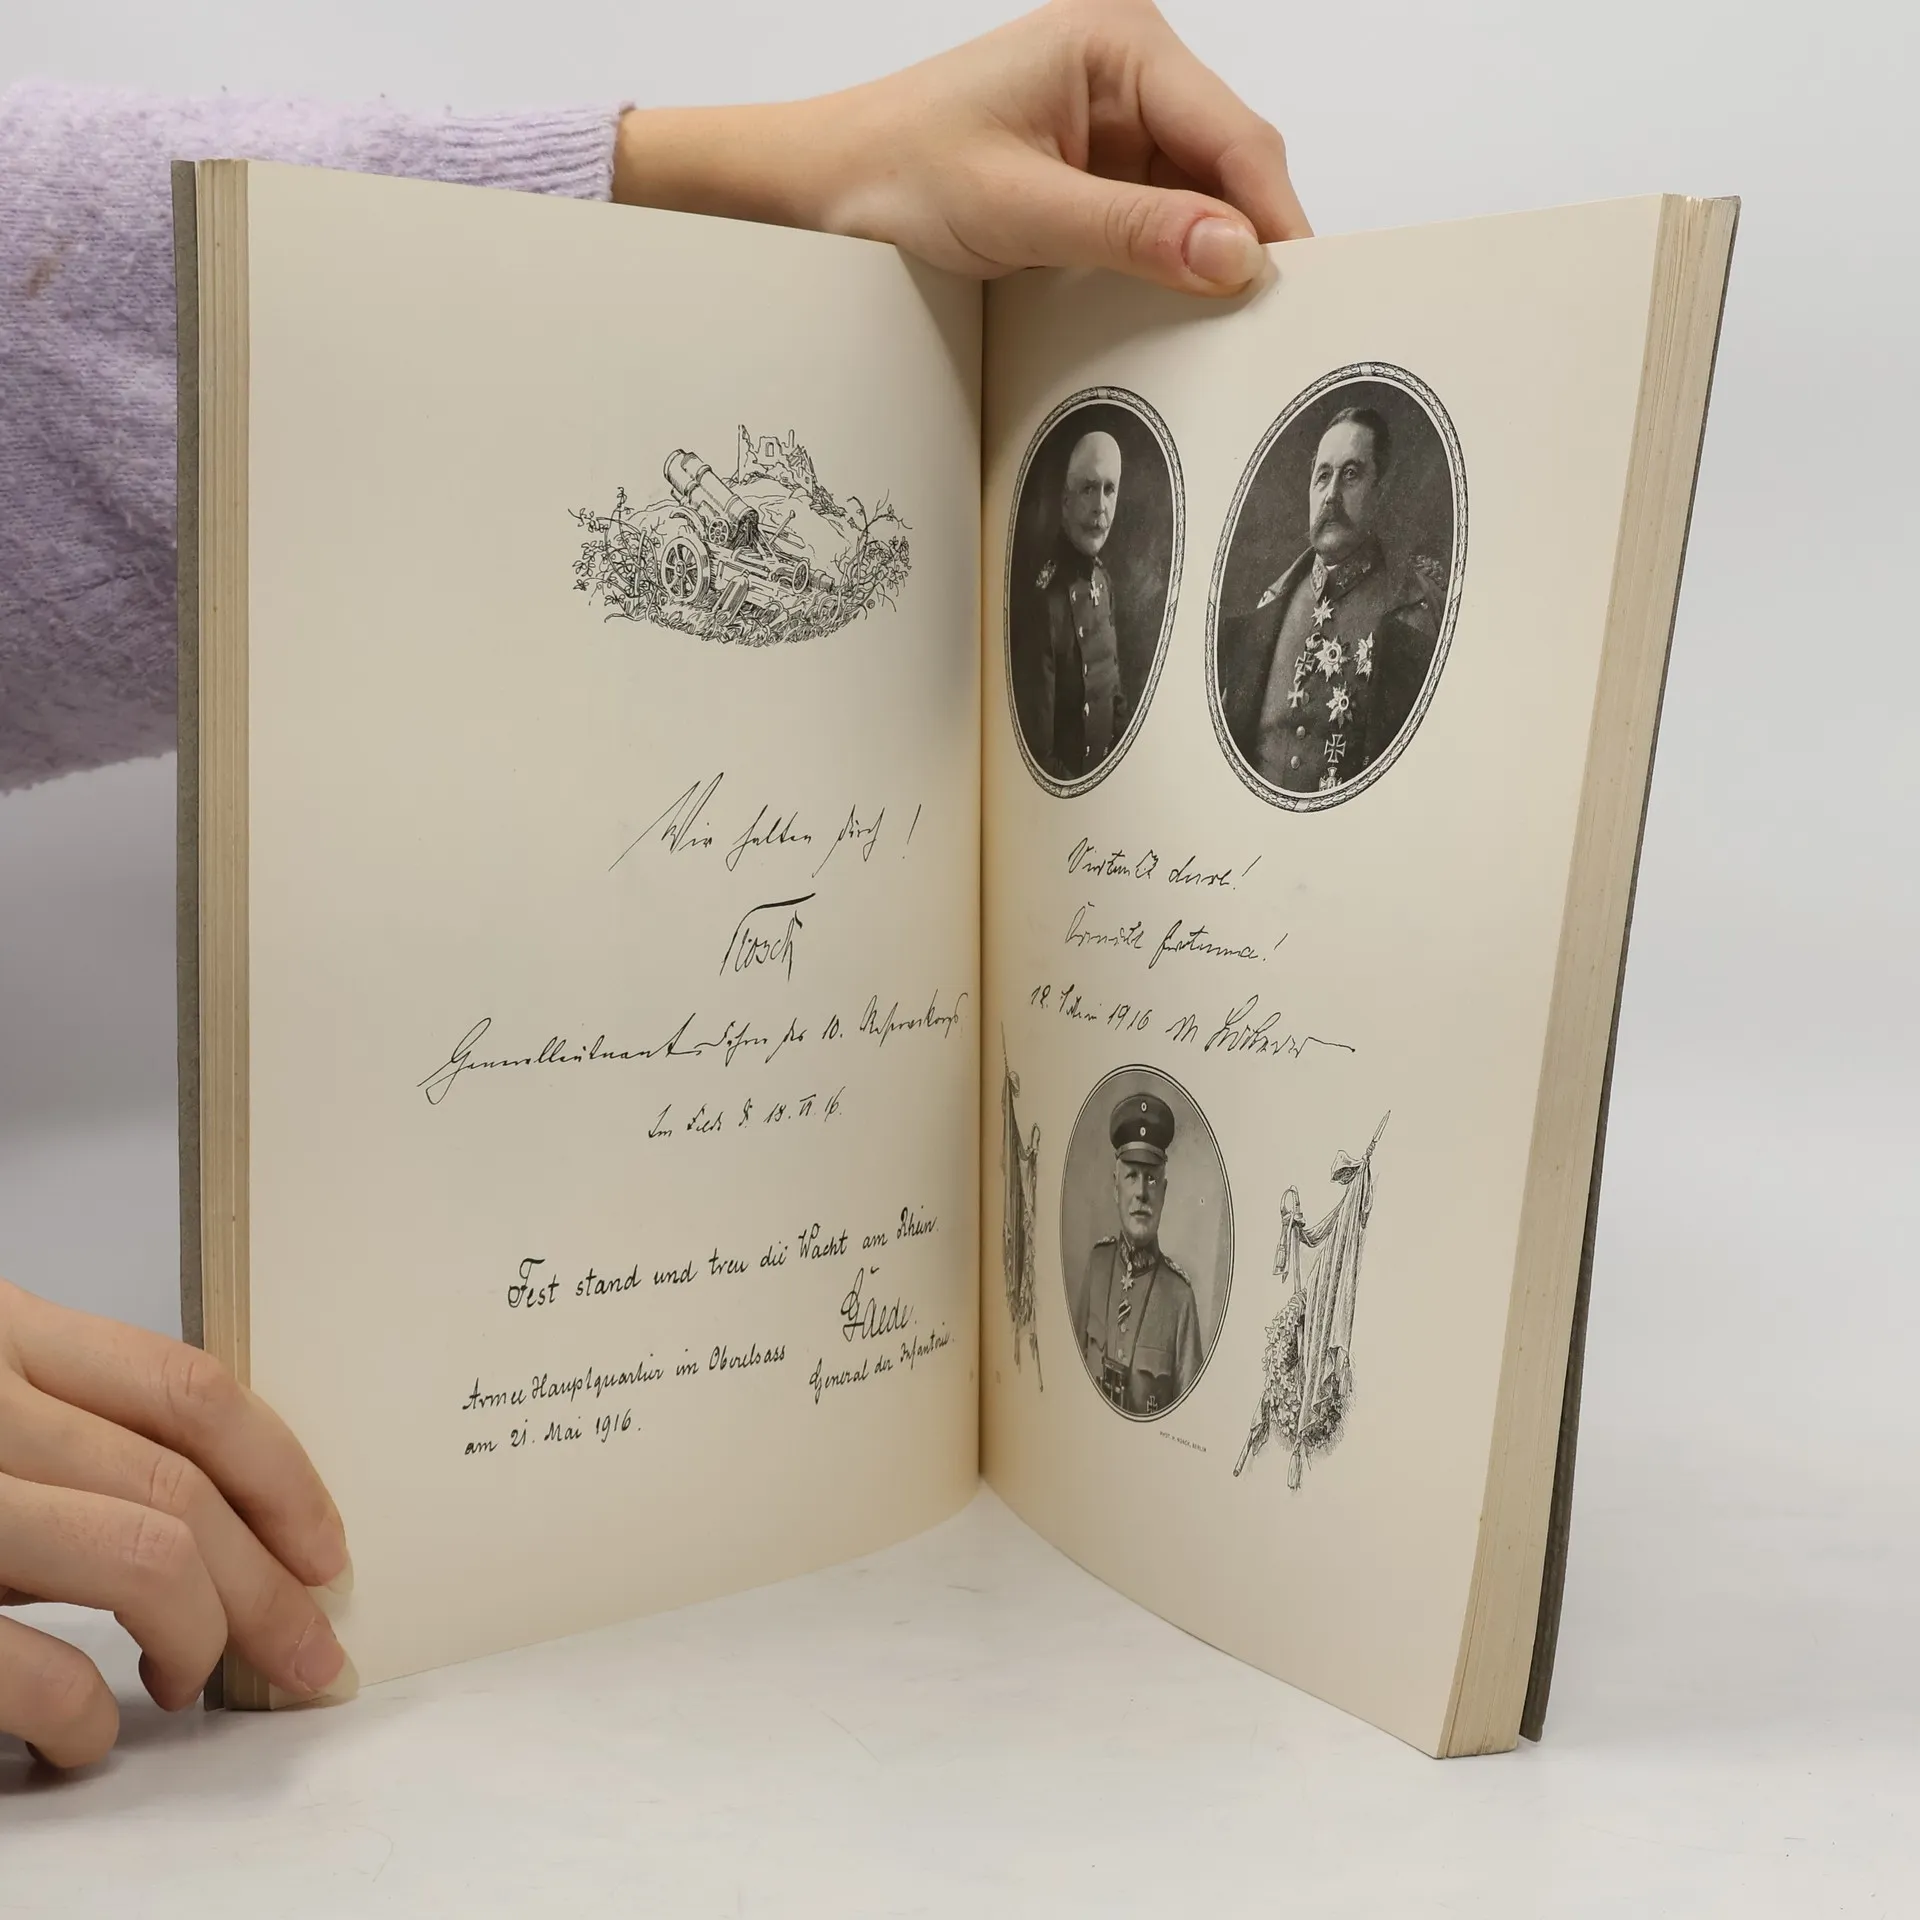 Wir halten durch!
Kosch
Generalleutnant, Führer des 10. Reservekorps
Im Felde d. 18. VI. 16.
Fest stand und treu die Wacht am Rhein.
Gaede.
General der Infanterie.
Armee Hauptquartier im Oberelsass
am 21. Mai 1916.
Virtuti duce!
Comite fortuna!
12. 1916
PHOT. R. NOACK, BERLIN